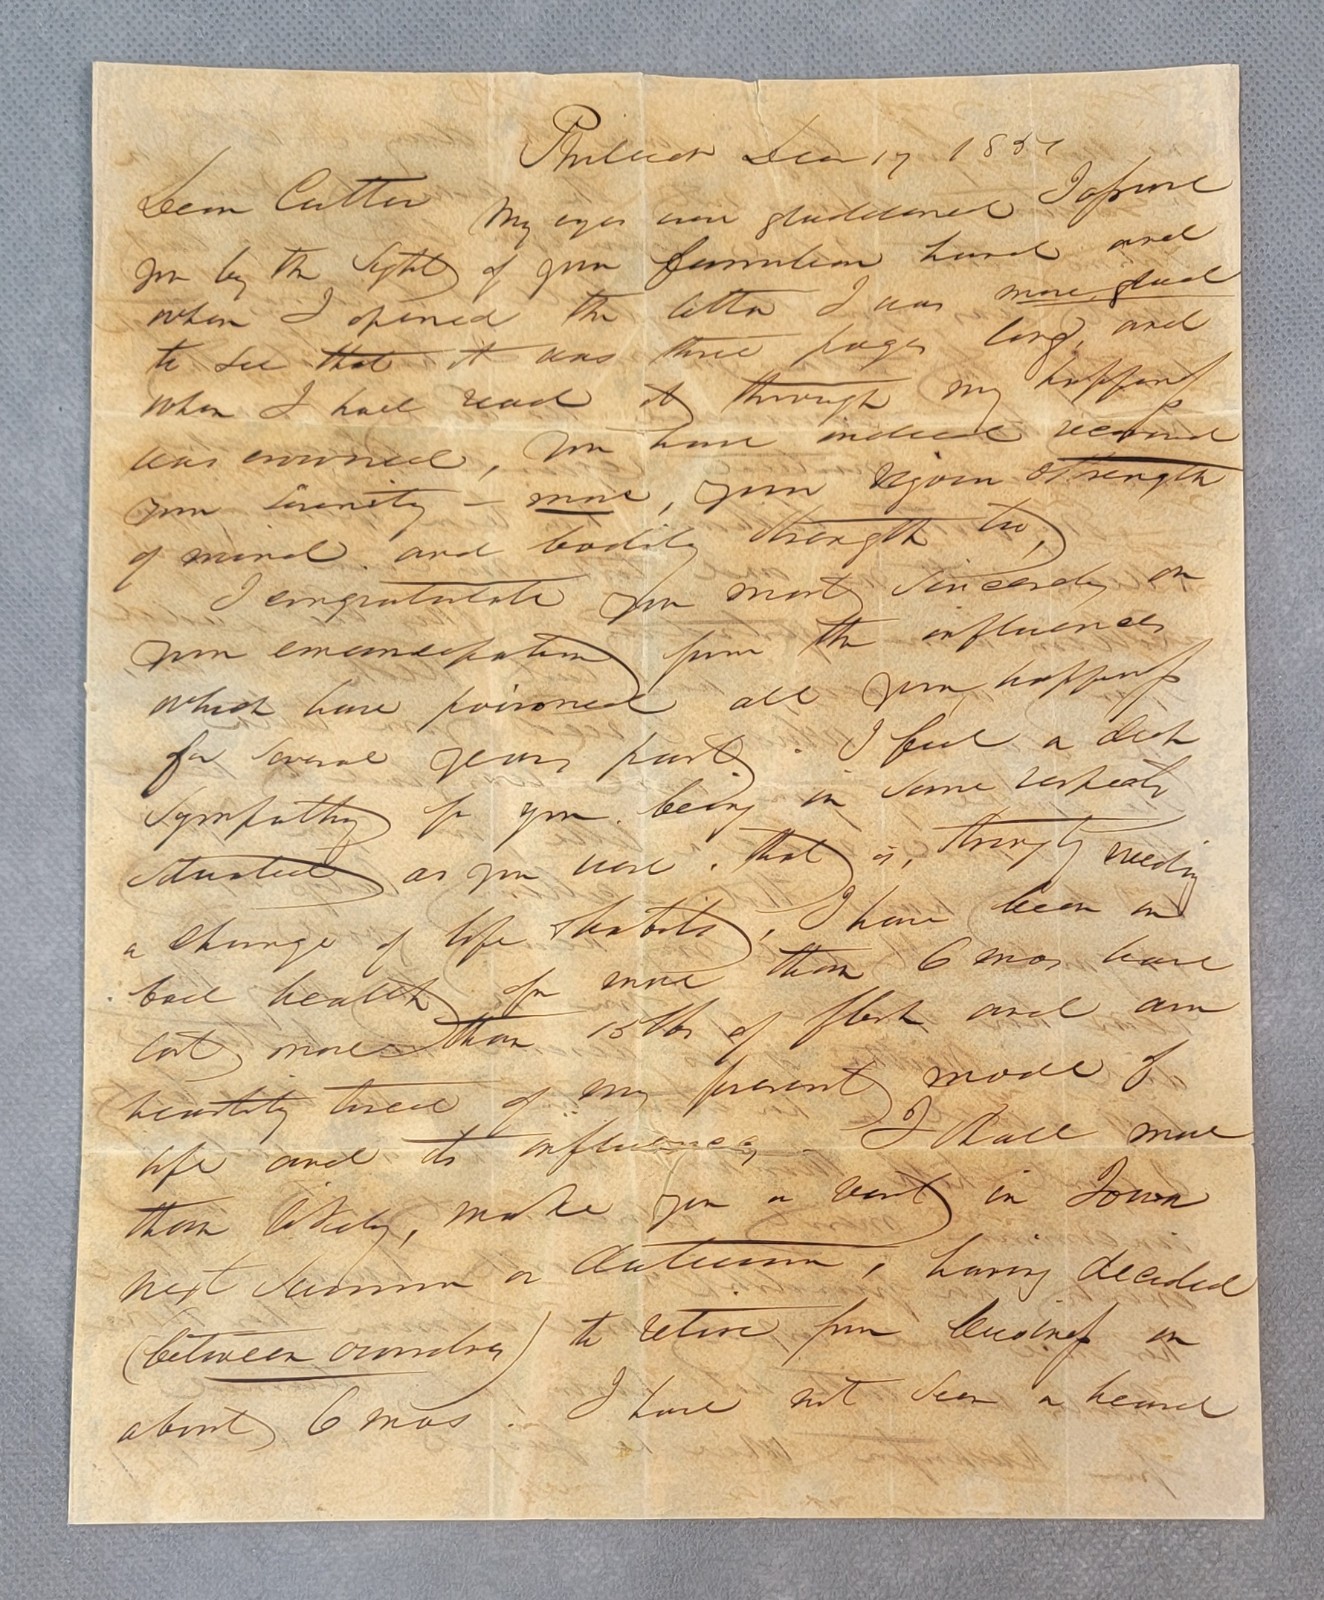 Philada Dec 17 185
Dear Cutter My eyes were gladdened I assure
you by the sight of your familiar hand and
when I opened the letter I was more glad
to see that it was three pages long, and
when I had read it through my happiness
was crowned, you have indeed
your sanity – more, your vigour strength
of mind. and bodily strength too,
I congratulate you most sincerely on
your emancipation from the influences
which have poisoned all your happiness
for several years past. I feel a
sympathy for you. being in some respects
situated as you were. that is, strongly needing
a change of life & habits, I have been in
bad health for more than 6 mos have
lost more than 15 lbs of flesh and am
heartily tired of my present mode of
life and its influences, – I shall more
than likely, make you a visit in Iowa
next Summer or Autumn, having decided
(between ourselves) to retire from business in
about 6 mos. I have not seen or heard